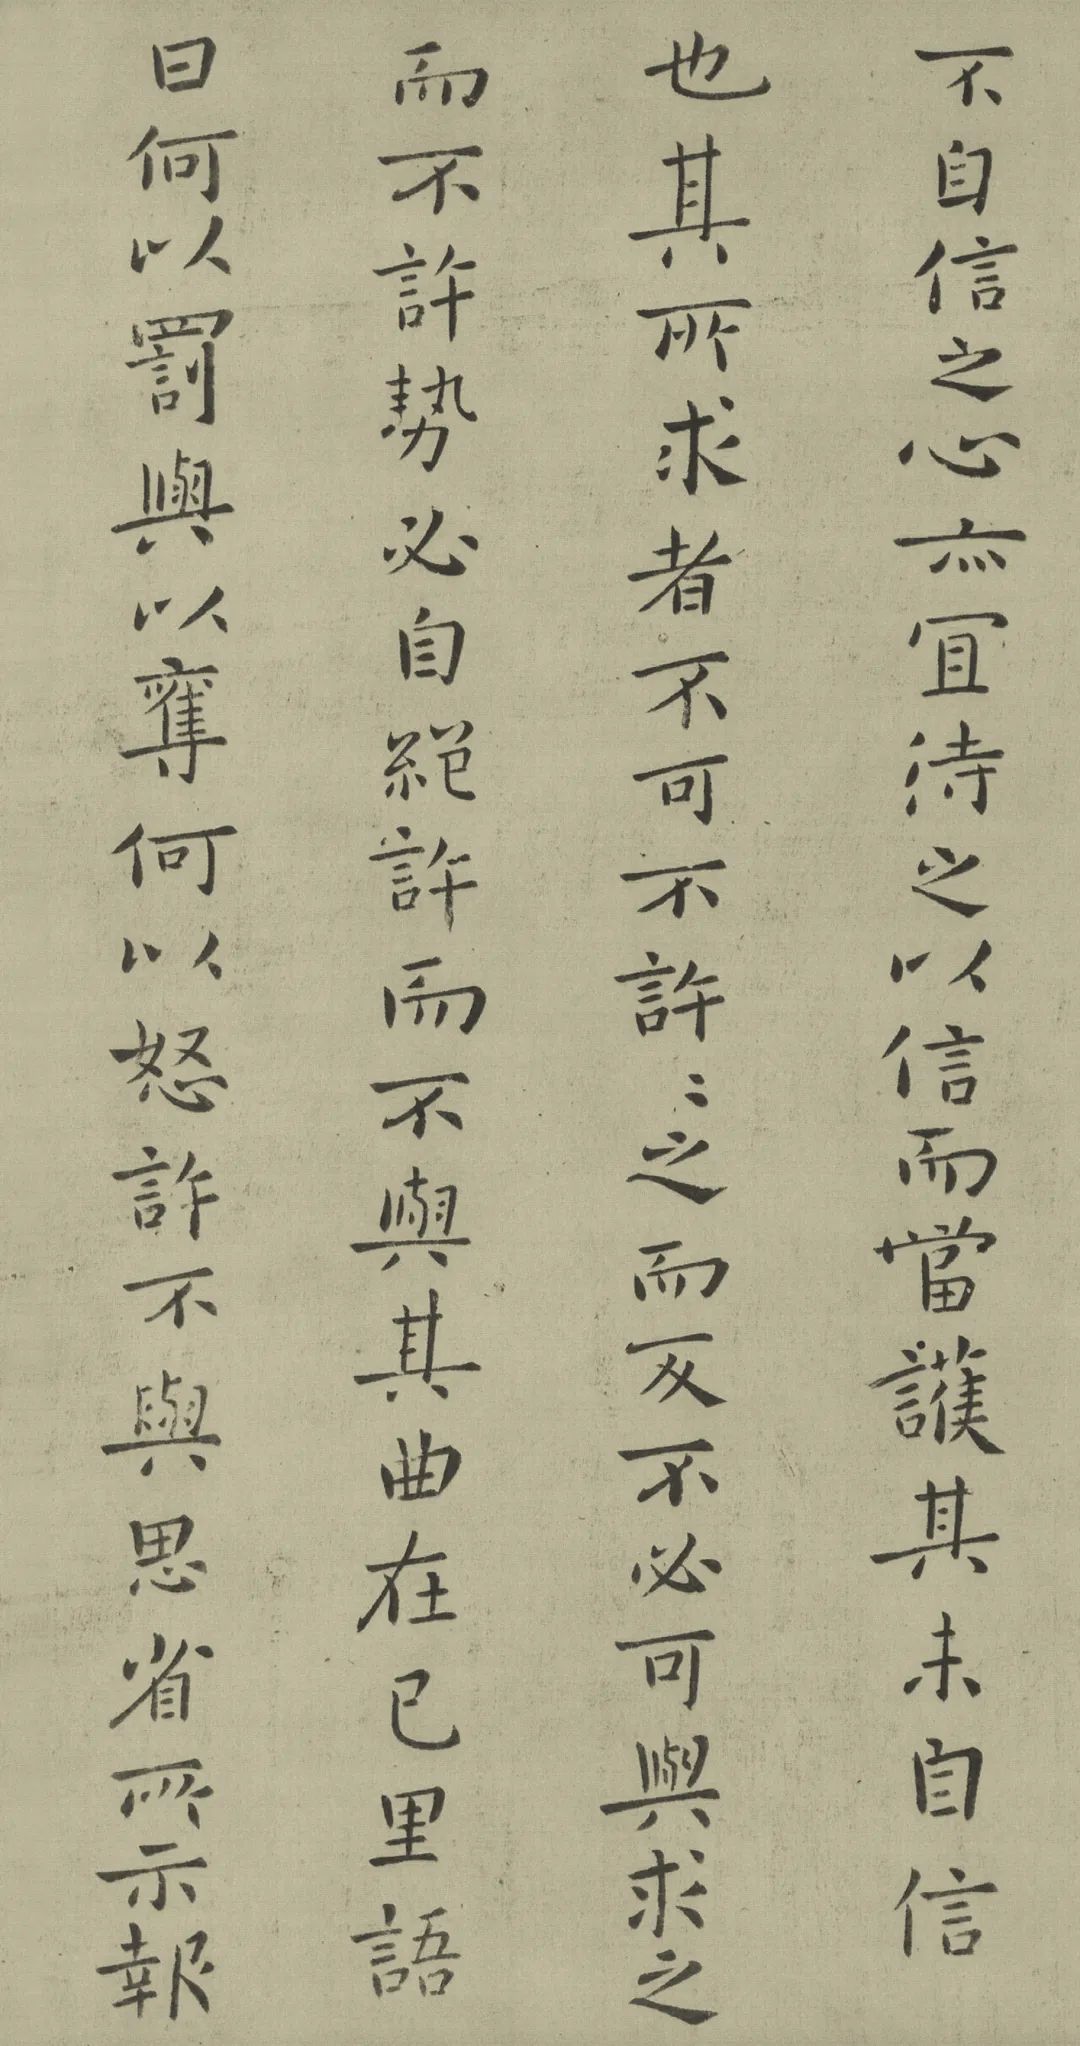 不自信之心亦宜待之以信而當護其未自信
也其所求者不可不許〻之而反不必可與求之
而不許勢必自絕許而不與其曲在己里語
曰何以罰與以奪何以怒許不與思省所示報